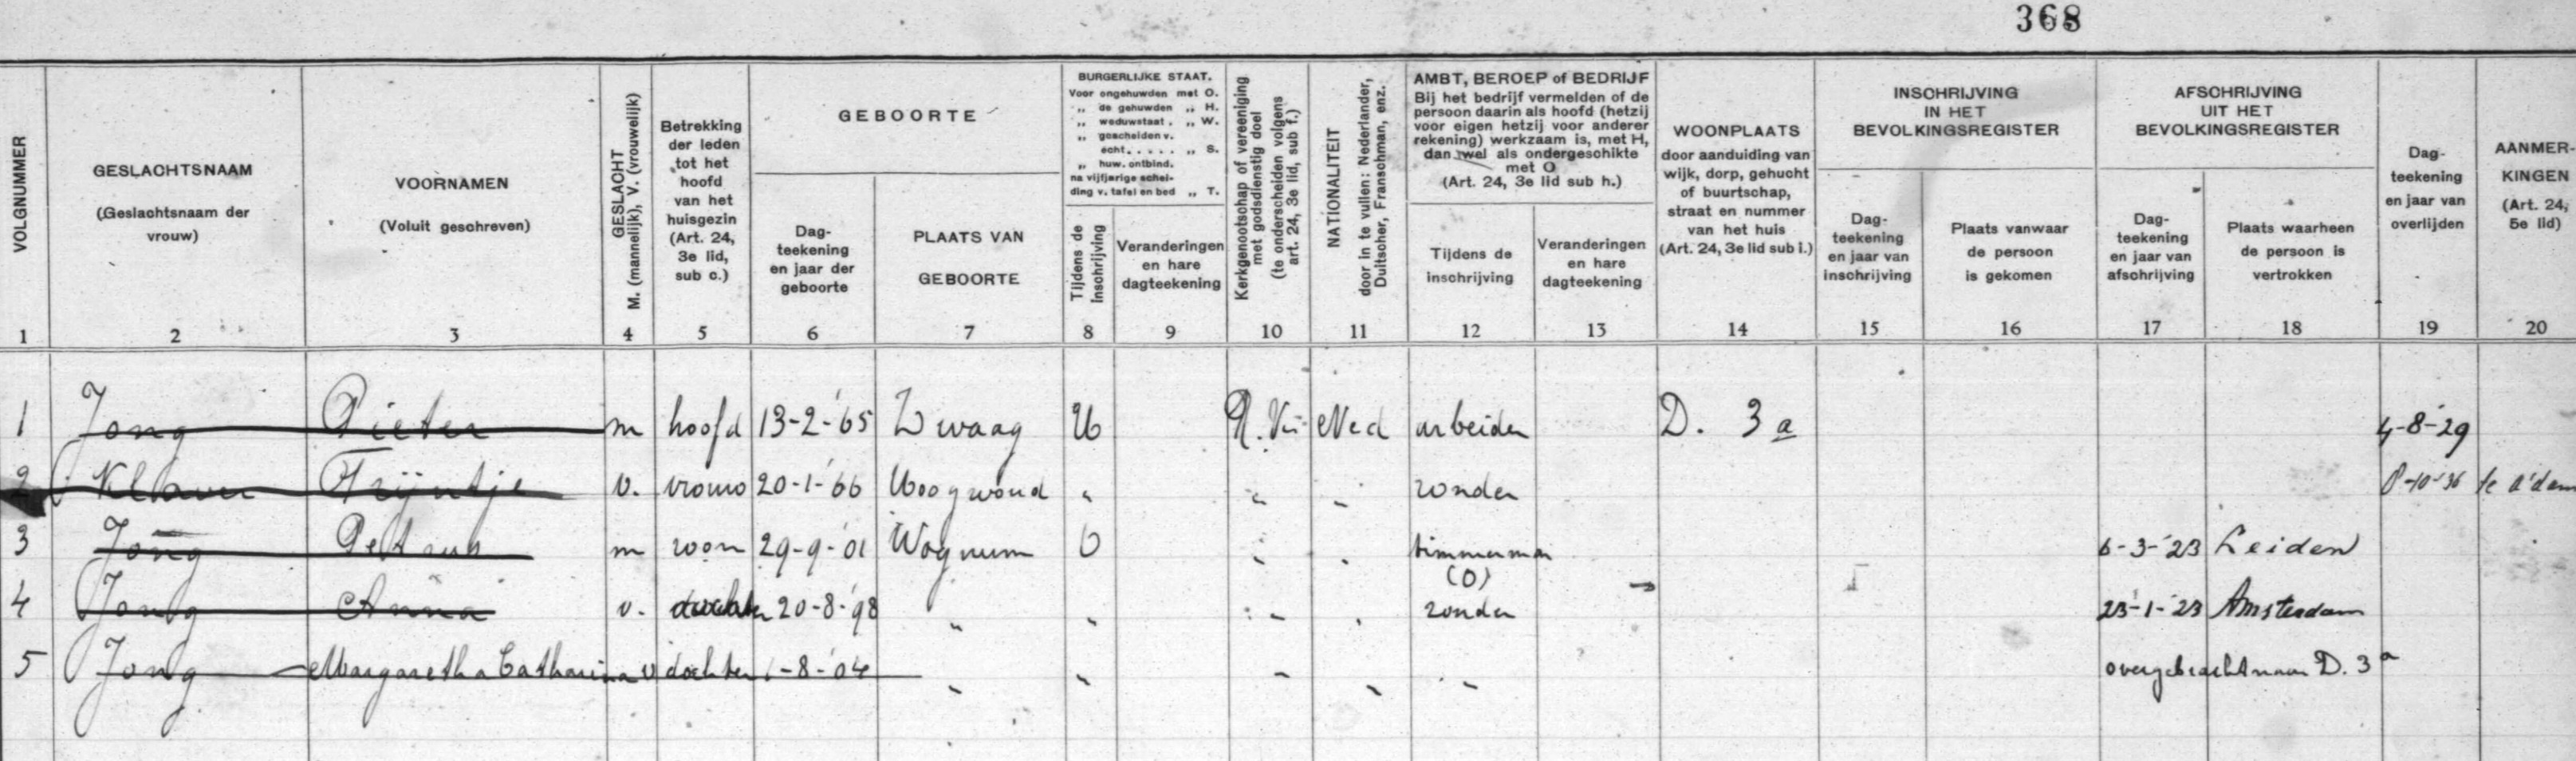 368
VOLGNUMMER
GESLACHTSNAAM
(Geslachtsnaam der
vrouw)
VOORNAMEN
(Voluit geschreven)
GESLACHT
M. (mannelijk), V. (vrouwelijk)
Betrekking
der leden
tot het
hoofd
van het
huisgezin
(Art. 24,
3e lid,
sub c.)
GEBOORTE
Dag-
teekening
en jaar der
geboorte
PLAATS VAN
GEBOORTE
BURGERLIJKE STAAT.
Voor ongehuwden met O.
„ de gehuwden „ H.
„ weduwstaat . „ W.
„ gescheiden v.
echt. . . . . „ S.
„ huw. ontbind.
na vijfjarige schei-
ding v. tafel en bed „ T.
Tijdens de
inschrijving
Veranderingen
en hare
dagteekening
Kerkgenootschap of vereeniging
met godsdienstig doel
(te onderscheiden volgens
art. 24, 3e lid, sub f.)
NATIONALITEIT
door in te vullen: Nederlander,
Duitscher, Franschman, enz.
AMBT, BEROEP of BEDRIJF
Bij het bedrijf vermelden of de
persoon daarin als hoofd (hetzij
voor eigen hetzij voor anderer
rekening) werkzaam is, met H,
dan wel als ondergeschikte
met O
(Art. 24, 3e lid sub h.)
Tijdens de
inschrijving
Veranderingen
en hare
dagteekening
WOONPLAATS
door aanduiding van
wijk, dorp, gehucht
of buurtschap,
straat en nummer
van het huis
(Art. 24, 3e lid sub i.)
INSCHRIJVING
IN HET
BEVOLKINGSREGISTER
Dag-
teekening
en jaar van
inschrijving
Plaats vanwaar
de persoon
is gekomen
AFSCHRIJVING
UIT HET
BEVOLKINGSREGISTER
Dag-
teekening
en jaar van
afschrijving
Plaats waarheen
de persoon is
vertrokken
Dag-
teekening
en jaar van
overlijden
AANMER-
KINGEN
(Art. 24,
5e lid)
1 2 3 4 5 6 7 8 9 10 11 12 13 14 15 16 17 18 19 20
1 Jong Pieter m hoofd 13-2-'65 Zwaag H Ned arbeider D. 3a 4-8-'29
2 Klaver Trijntje v. vrouw 20-1-'66 Hoogwoud " " " zonder 8-10-'36 te A'dam
3 Jong Petrus m zoon 29-9-'01 Wognum O " " timmerman 6-3-'23 Leiden
(O)
4 Jong Anna v. dochter 20-8-'98 " " " " zonder 23-1-'23 Amsterdam
5 Jong Margaretha Catharina v dochter 1-8-'04 " " " " " overgebracht naar D. 3a